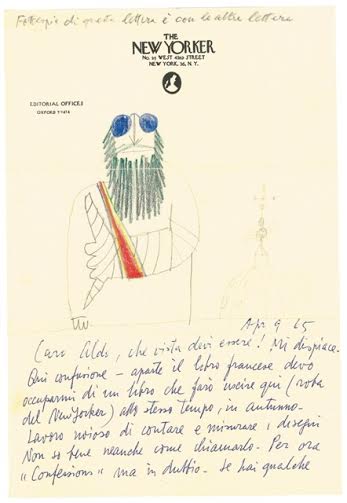 Fotocopia di questa lettera è con le altre lettere
THE
NEW YORKER
No. 25 WEST 43RD STREET
NEW YORK 36, N.Y.
EDITORIAL OFFICES
OXFORD 7-1414
Apr 9 65
Caro Aldo, che vista devi essere! Mi dispiace.
Qui confusione – aparte il libro francese devo
occuparmi di un libro che farò uscire qui (roba
del NewYorker) allo stesso tempo, in autunno –
Lavoro noioso di contare e misurare i disegni
Non so bene neanche come chiamarlo. Per ora
"Confessions" ma in dubbio – se hai qualche